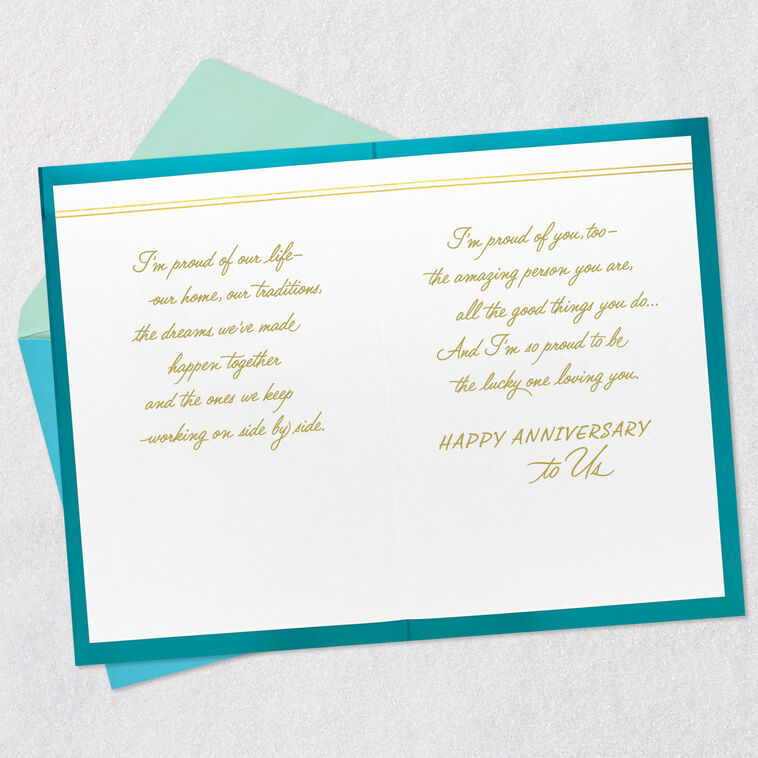 I'm proud of our life–
our home, our traditions,
the dreams we've made
happen together
and the ones we keep
working on side by side.
I'm proud of you, too–
the amazing person you are,
all the good things you do...
And I'm so proud to be
the lucky one loving you.
HAPPY ANNIVERSARY
to Us